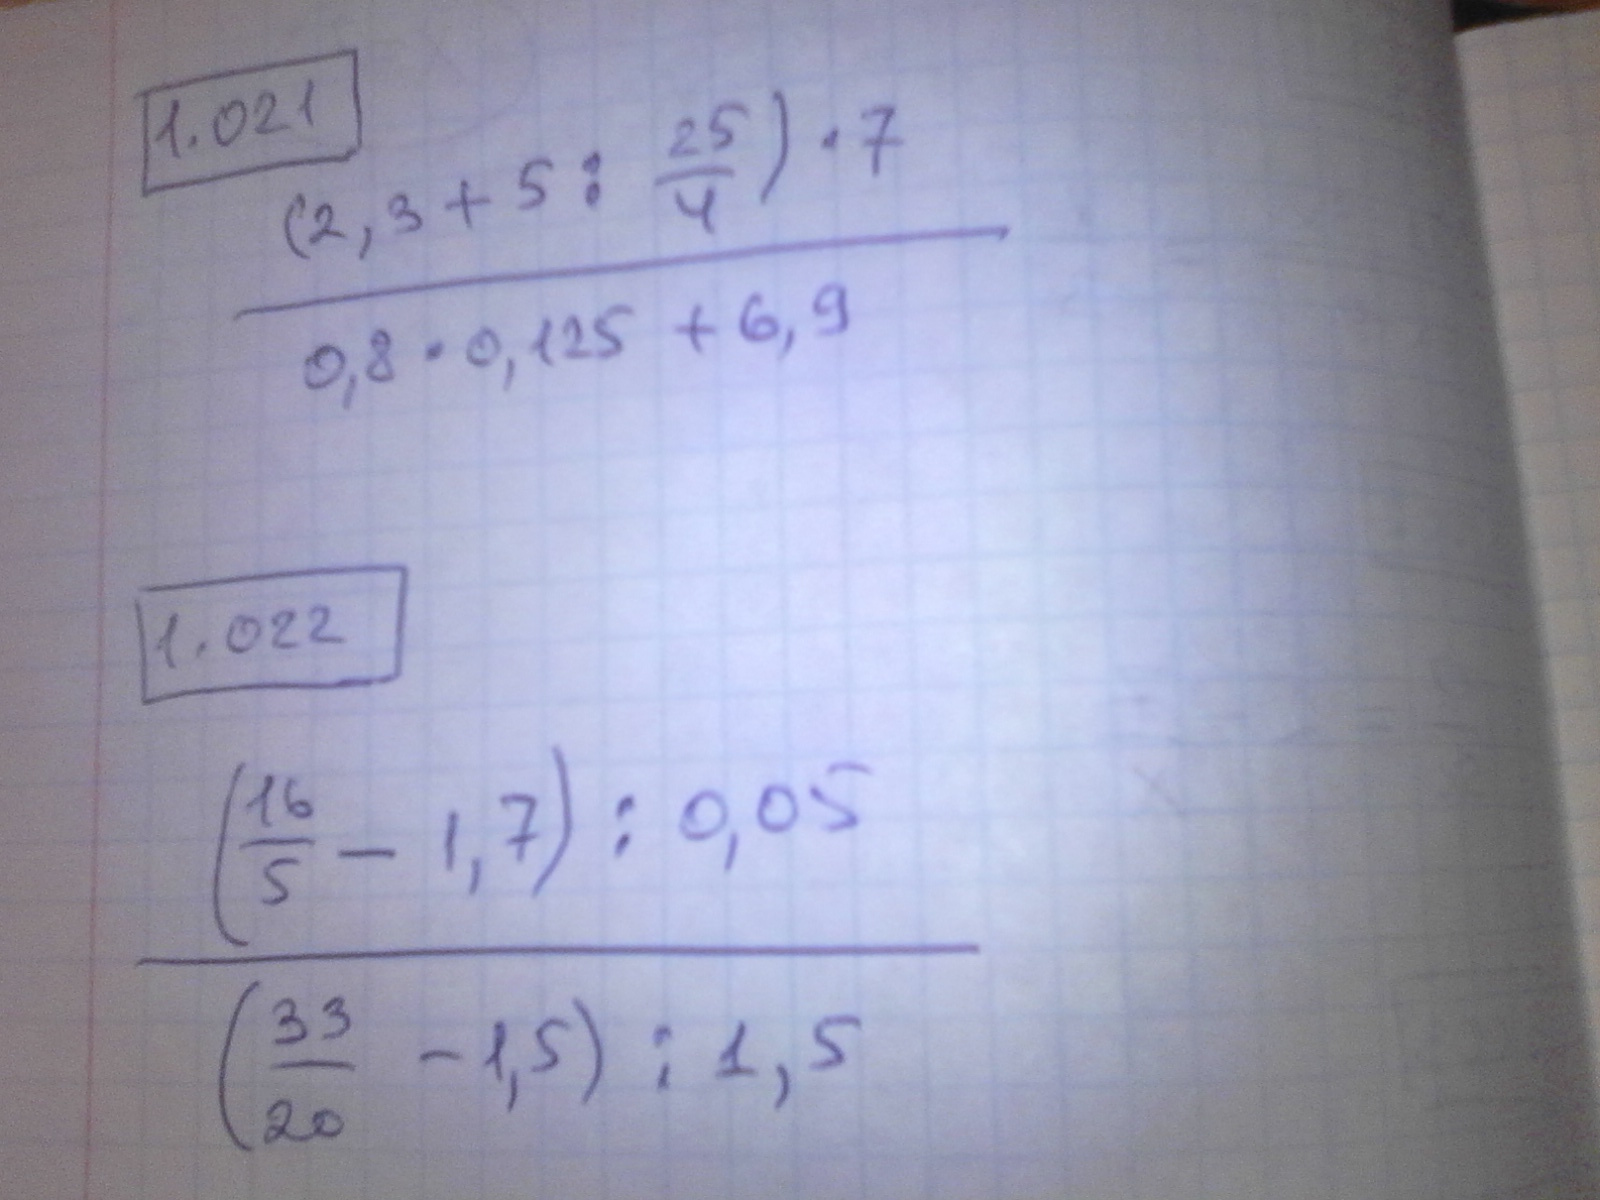 1.021
(2,3 + 5 : 25/4) · 7
0,8 · 0,125 + 6,9
1.022
(16/5 - 1,7) : 0,05
(33/20 - 1,5) : 1,5